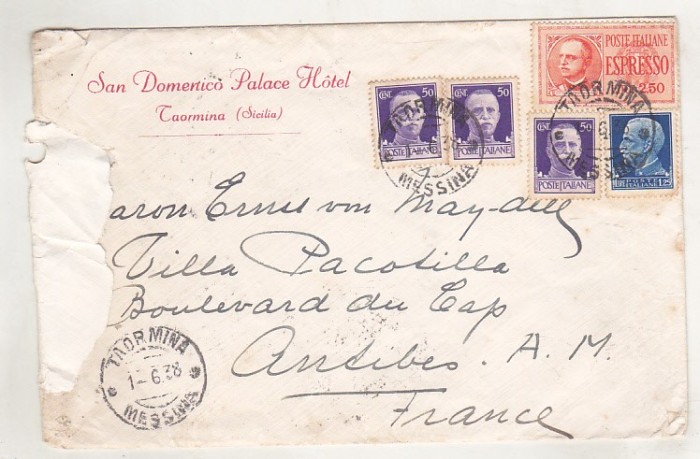 San Domenico Palace Hôtel
Taormina (Sicilia)
POSTE ITALIANE
ESPRESSO
2.50
CENT. 50
POSTE ITALIANE
CENT. 50
POSTE ITALIANE
50
POSTE ITALIANE
1.25
TAORMINA
MESSINA
TAORMINA
MESSINA
aron Ernst von May-dell
Villa Pacotilla
Boulevard du Cap
Antibes. A. M.
France
TAORMINA
1-6.38
MESSINA